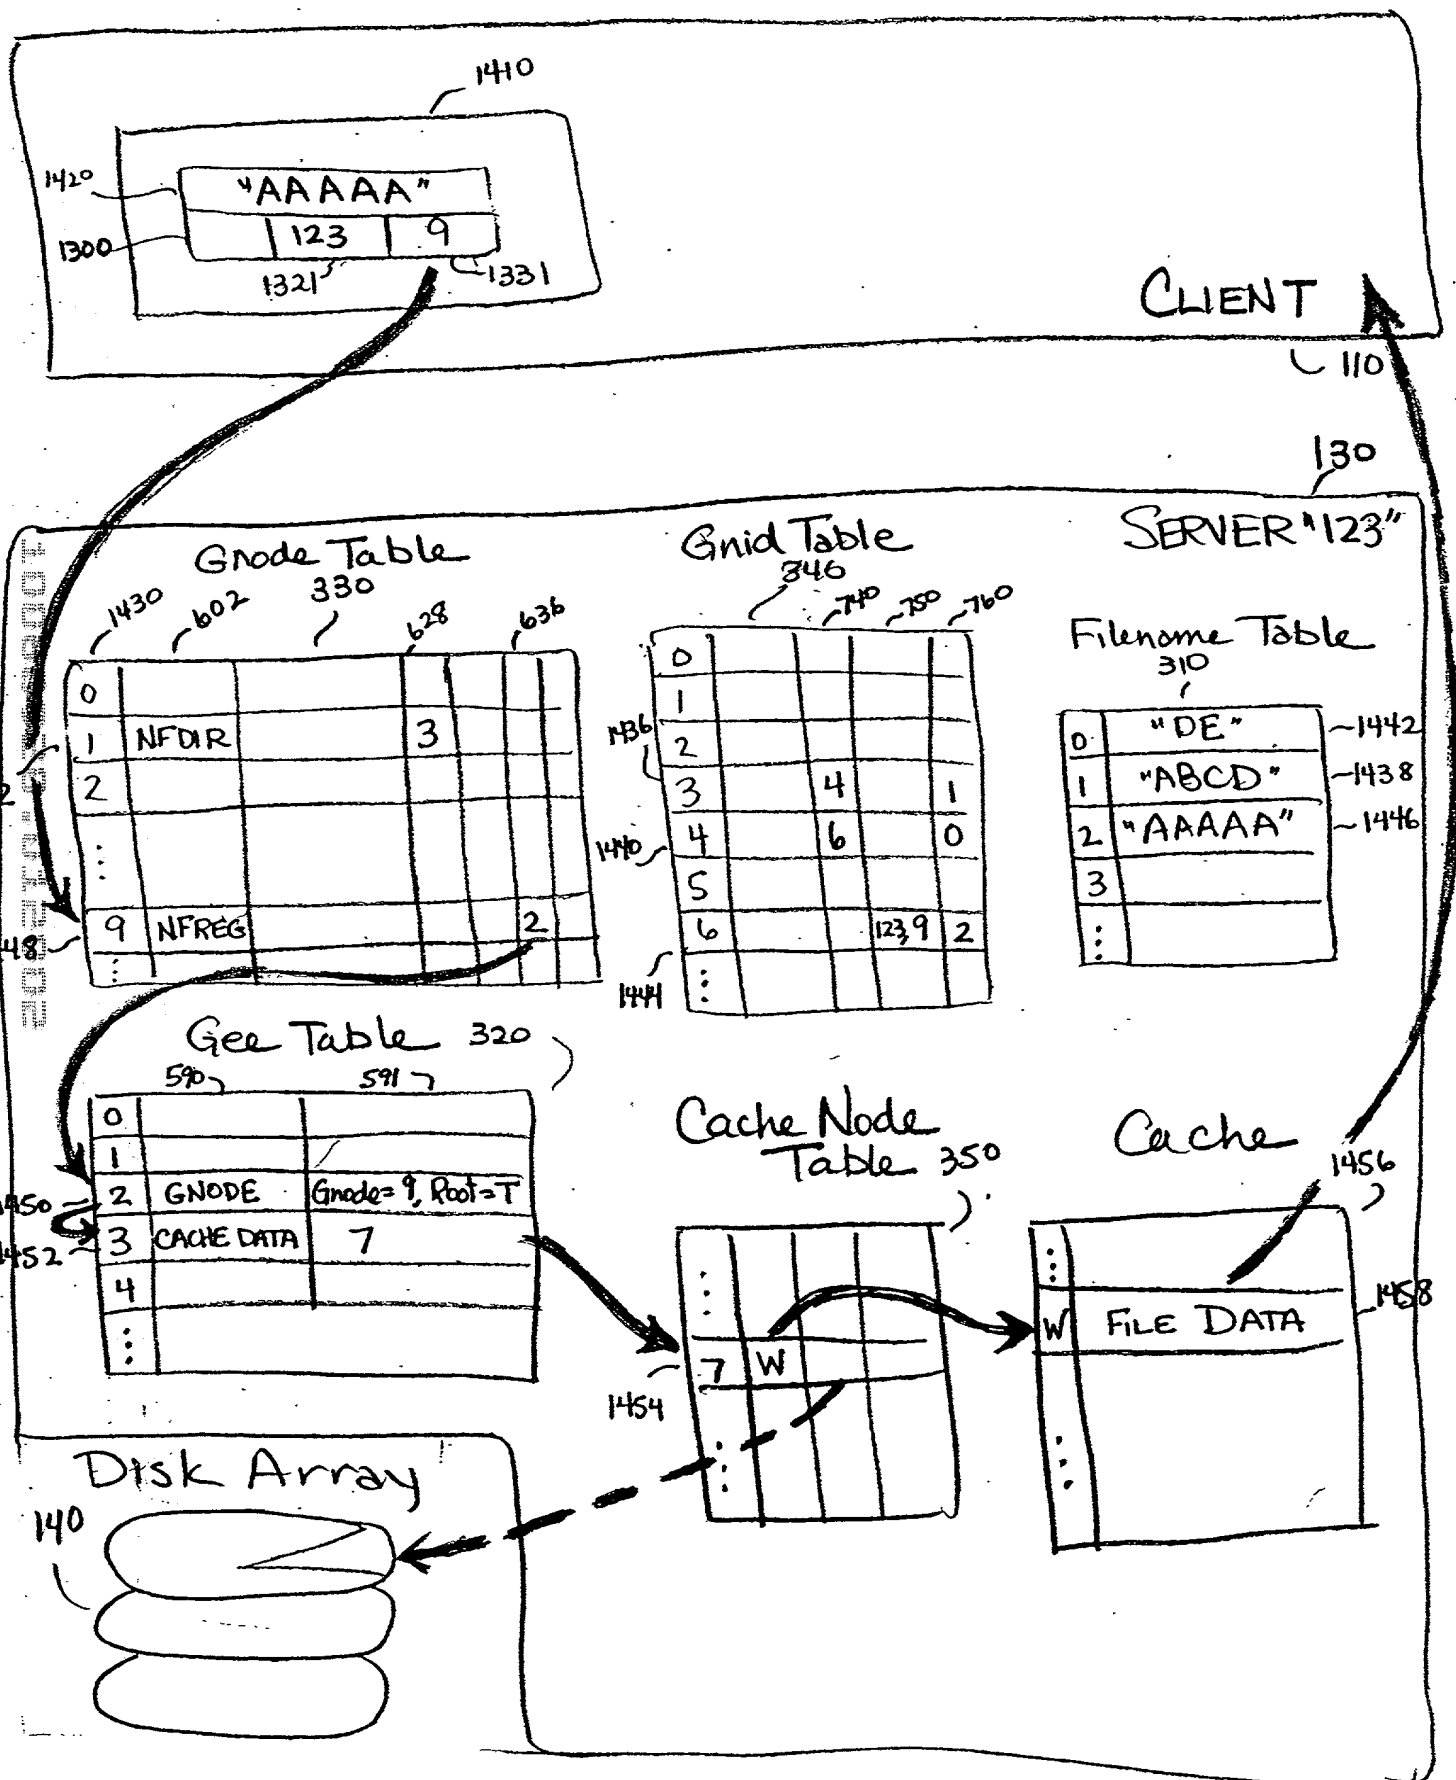 1410
1420
"AAAAA"
1300
123
9
1321
1331
CLIENT
110
130
SERVER "123"
Gnode Table
330
1430
602
628
636
0
1
NFDIR
3
2
9
NFREG
2
Gnid Table
346
740
750
760
0
1
1436
2
3
4
1
1440
4
6
0
5
6
123,9
2
1444
Filename Table
310
0
"DE"
1442
1
"ABCD"
1438
2
"AAAAA"
1446
3
Gee Table 320
590
591
0
1
1450
2
GNODE
Gnode=9, Root=T
1452
3
CACHE DATA
7
4
Cache Node
Table 350
7
W
1454
Cache
1456
W
FILE DATA
1458
Disk Array
140